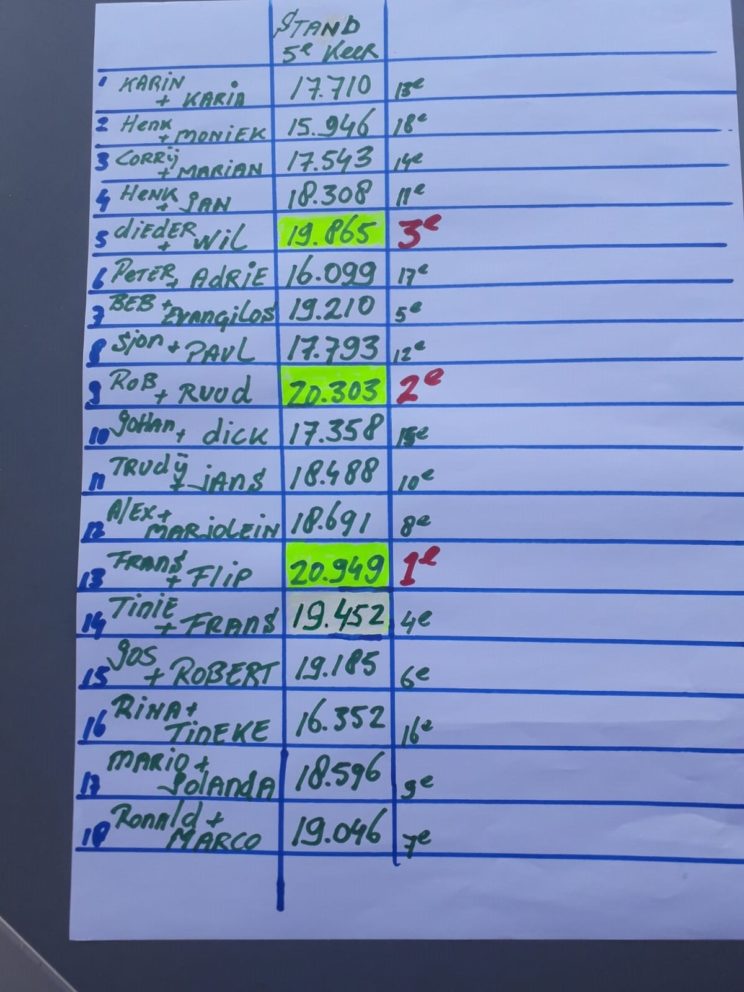 STAND
5e Keer
1 KARIN + KARIN 17.710 13e
2 Henk + MONIEK 15.946 18e
3 CORRIJ + MARIAN 17.543 14e
4 Henk + JAN 18.308 11e
5 diEdER + WiL 19.865 3e
6 PETER + AdRiE 16.099 17e
7 BEB + EVANGiLOS 19.210 5e
8 Sjon + PAUL 17.793 12e
9 ROB + RUUd 20.303 2e
10 JOHAN + dick 17.358 15e
11 TRUdIJ + jANS 18.488 10e
12 AlEx + MARJOLEIN 18.691 8e
13 FRANS + FLiP 20.949 1e
14 TiNiE + FRANS 19.452 4e
15 JOS + ROBERT 19.185 6e
16 RiNA + TiNEKE 16.352 16e
17 MARIO + JOLANDA 18.596 9e
18 Ronald + MARCO 19.046 7e